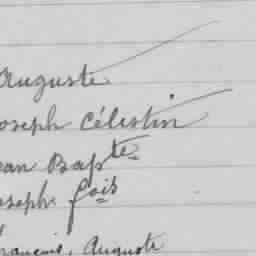 Auguste
Joseph Célestin
Jean Bapte
Joseph fois
François, Auguste